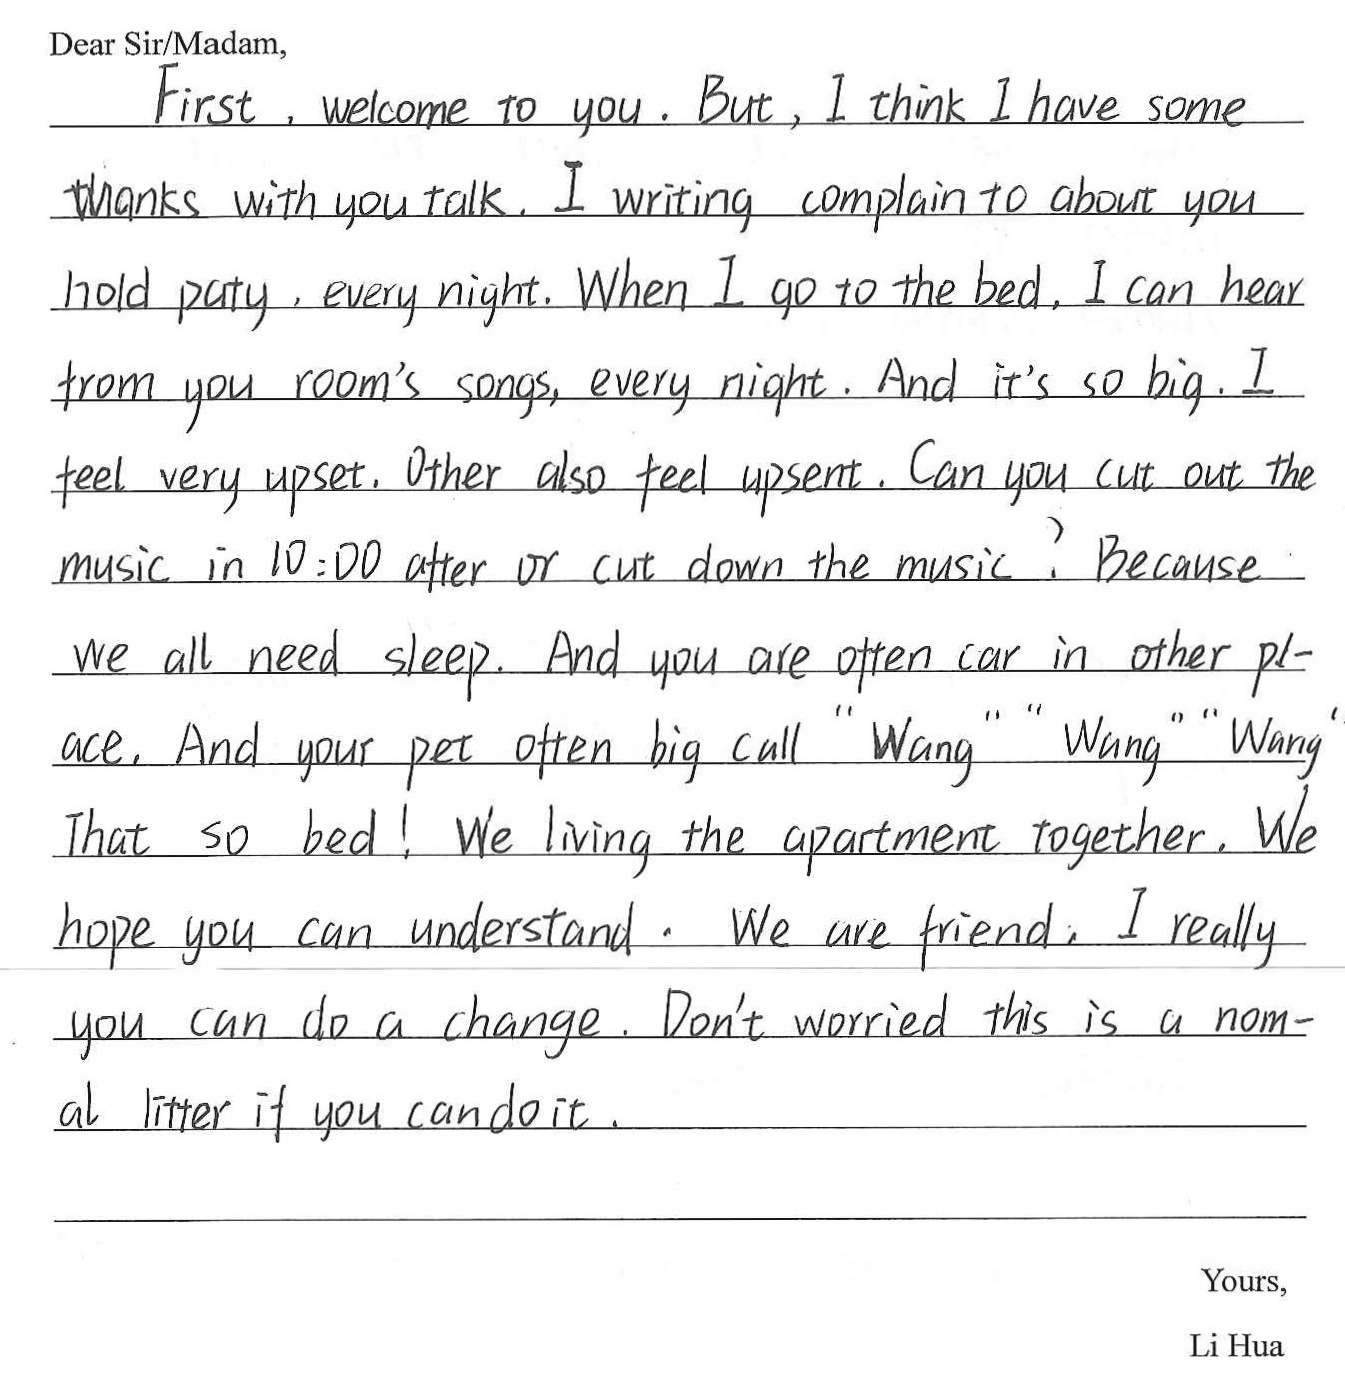 Dear Sir/Madam,
First, welcome to you. But, I think I have some
thanks with you talk. I writing complain to about you
hold paty, every night. When I go to the bed, I can hear
from you room's songs, every night. And it's so big. I
feel very upset. Other also feel upsent. Can you cut out the
music in 10:00 after or cut down the music? Because
we all need sleep. And you are often car in other pl-
ace. And your pet often big call "Wang" "Wang" "Wang"
That so bed! We living the apartment together. We
hope you can understand. We are friend, I really
you can do a change. Don't worried this is a nom-
al litter if you can do it.
Yours,
Li Hua